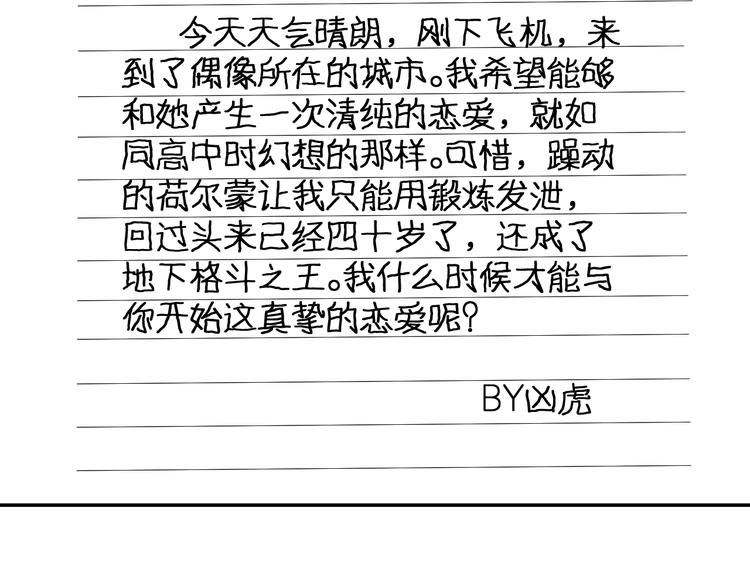 今天天气晴朗，刚下飞机，来
到了偶像所在的城市。我希望能够
和她产生一次清纯的恋爱，就如
同高中时幻想的那样。可惜，躁动
的荷尔蒙让我只能用锻炼发泄，
回过头来已经四十岁了，还成了
地下格斗之王。我什么时候才能与
你开始这真挚的恋爱呢?
BY凶虎